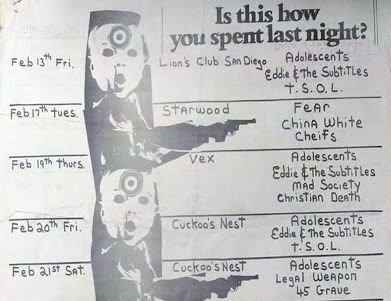 Is this how
you spent last night?
Feb 13th Fri. Lion's Club San Diego Adolescents
Eddie & the Subtitles
T.S.O.L.
Feb 17th tues. Starwood Fear
China White
Cheifs
Feb 19th thurs. Vex Adolescents
Eddie & the Subtitles
mad Society
Christian Death
Feb 20th Fri. Cuckoo's Nest Adolescents
Eddie & the Subtitles
T.S.O.L.
Feb 21st Sat. Cuckoo's Nest Adolescents
Legal Weapon
45 Grave